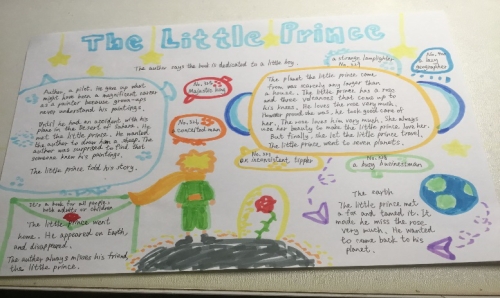 The Little Prince
The author says the book is dedicated to a little boy.
Author, a pilot, he gave up what
might have been a magnificent career
as a painter because grown-ups
never understand his paintings.
Pilot he had an accident with his
plane in the Desert of Sahara. He
met the little prince. He wanted
the author to draw him a sheep. The
author was surprised to find that
someone knew his paintings.
The little prince told his story.
No. 325
Majestic king
No. 326
a conceited man
a strange lamplighter
No. 329
No. 330
lazy
geographer
The planet the little prince came
from was scarcely any larger than
a house. The little prince has a rose
and three volcanoes that came up to
his knees. He loves the rose very much.
However proud she was, he took good care of
her. The rose loves him very much. She always
uses her beauty to make the little prince love her.
But finally, she let the little prince travel.
The little prince went to seven planets.
No. 327
an inconsistent tippler
No. 328
a busy businessman
It's a book for all people,
both adults or children.
The little prince went
home. He appeared on Earth,
and disappeared.
The author always misses his friend,
the little prince.
The earth
The little prince met
a fox and tamed it. It
made he miss the rose
very much. He wanted
to come back to his
planet.